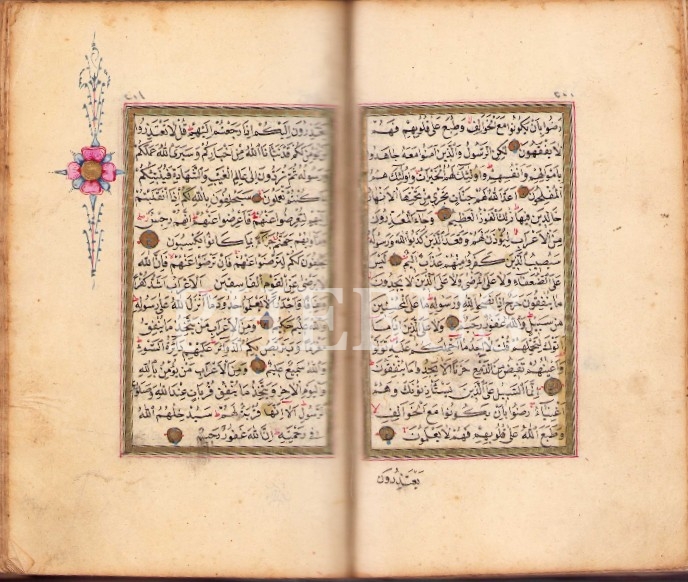 ٢٠٠
رضوا بان يكونوا مع الخوالف وطبع على قلوبهم فهم
لا يفقهون لكن الرسول والذين امنوا معه جاهدوا
باموالهم وانفسهم واولئك لهم الخيرات واولئك هم
المفلحون اعد الله لهم جنات تجري من تحتها الانهار
خالدين فيها ذلك الفوز العظيم وجاء المعذرون
من الاعراب ليؤذن لهم وقعد الذين كذبوا الله ورسوله
سيصيب الذين كفروا منهم عذاب اليم ليس
على الضعفاء ولا على المرضى ولا على الذين لا يجدون
ما ينفقون حرج اذا نصحوا لله ورسوله ما على المحسنين
من سبيل والله غفور رحيم ولا على الذين اذا ما
اتوك لتحملهم قلت لا اجد ما احملكم عليه تولوا و
اعينهم تفيض من الدمع حزنا الا يجدوا ما ينفقون
انما السبيل على الذين يستأذنونك وهم
اغنياء رضوا بان يكونوا مع الخوالف
وطبع الله على قلوبهم فهم لا يعلمون
يعتذرون
٢٠١
يعتذرون اليكم اذا رجعتم اليهم قل لا تعتذروا
نؤمن لكم قد نبأنا الله من اخباركم وسيرى الله عملكم
ورسوله ثم تردون الى عالم الغيب والشهادة فينبئكم
كنتم تعملون سيحلفون بالله لكم اذا انقلبتم
اليهم لتعرضوا عنهم فاعرضوا عنهم انهم رجس
ومأويهم جهنم جزاء بما كانوا يكسبون
يحلفون لكم لترضوا عنهم فان ترضوا عنهم فان الله
لا يرضى عن القوم الفاسقين الاعراب اشد كفرا
ونفاقا واجدر الا يعلموا حدود ما انزل الله على رسوله
والله عليم حكيم ومن الاعراب من يتخذ ما ينفق
مغرما ويتربص بكم الدوائر عليهم دائرة السوء
والله سميع عليم ومن الاعراب من يؤمن بالله
واليوم الاخر ويتخذ ما ينفق قربات عند الله وصلوات
الرسول الا انها قربة لهم سيدخلهم الله
في رحمته ان الله غفور رحيم
PHEBUS